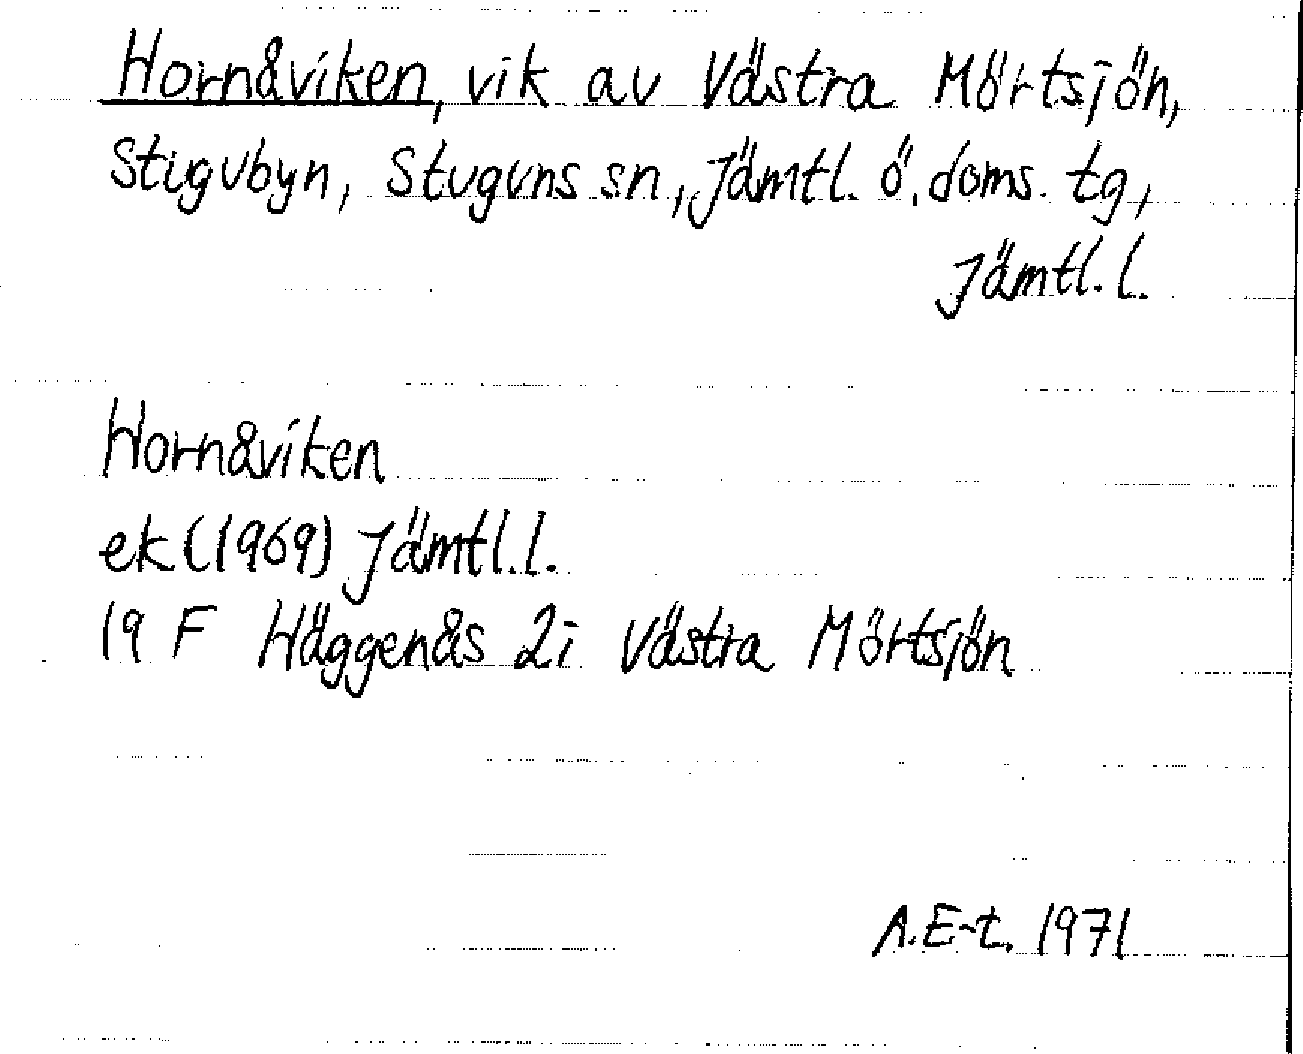 Hornåviken, vik av Västra Mörtsjön,
Stugubyn, Stuguns sn, Jämtl. ö. doms. tg,
Jämtl. l.
Hornåviken
ek (1969) Jämtl. l.
19 F Häggenås 2i Västra Mörtsjön
A.E-t. 1971